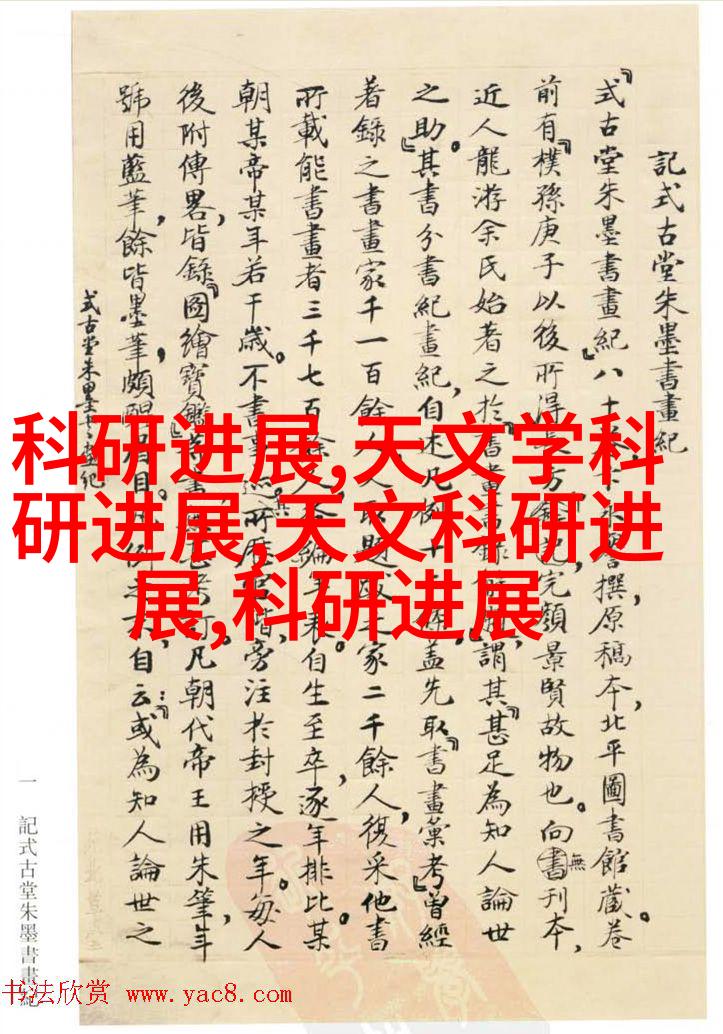 記式古堂朱墨書畫紀
『式古堂朱墨書畫紀』八十卷,
撰原稿本,北平圖書館藏。卷
前有『樸孫庚子以後所得
完顏景賢故物也。向無書刊本,
近人龍游余氏始著之於『書畫
謂其『甚足為知人論世
之助。』其書分書紀畫紀,自述凡例十
蓋先取『書畫彙考』曾經
著錄之書畫家千一百餘人,
家二千餘人,復采他書
所載能書畫者三千七百餘人,
編年表。自生至卒,逐年排比。某
朝某帝某年若干歲。不書事
旁注於封授之年。每人
後附傳畧,皆錄『圖繪寶鑑
凡朝代帝王用朱筆,年
號用藍筆,餘皆墨筆,頗醒目。
例之
自云:『或為知人論世之
式古堂朱墨書畫紀
一 記式古堂朱墨書畫紀
科研进展,天文学科
研进展,天文科研进
展,科研进展
书法欣赏 www.yac8.com